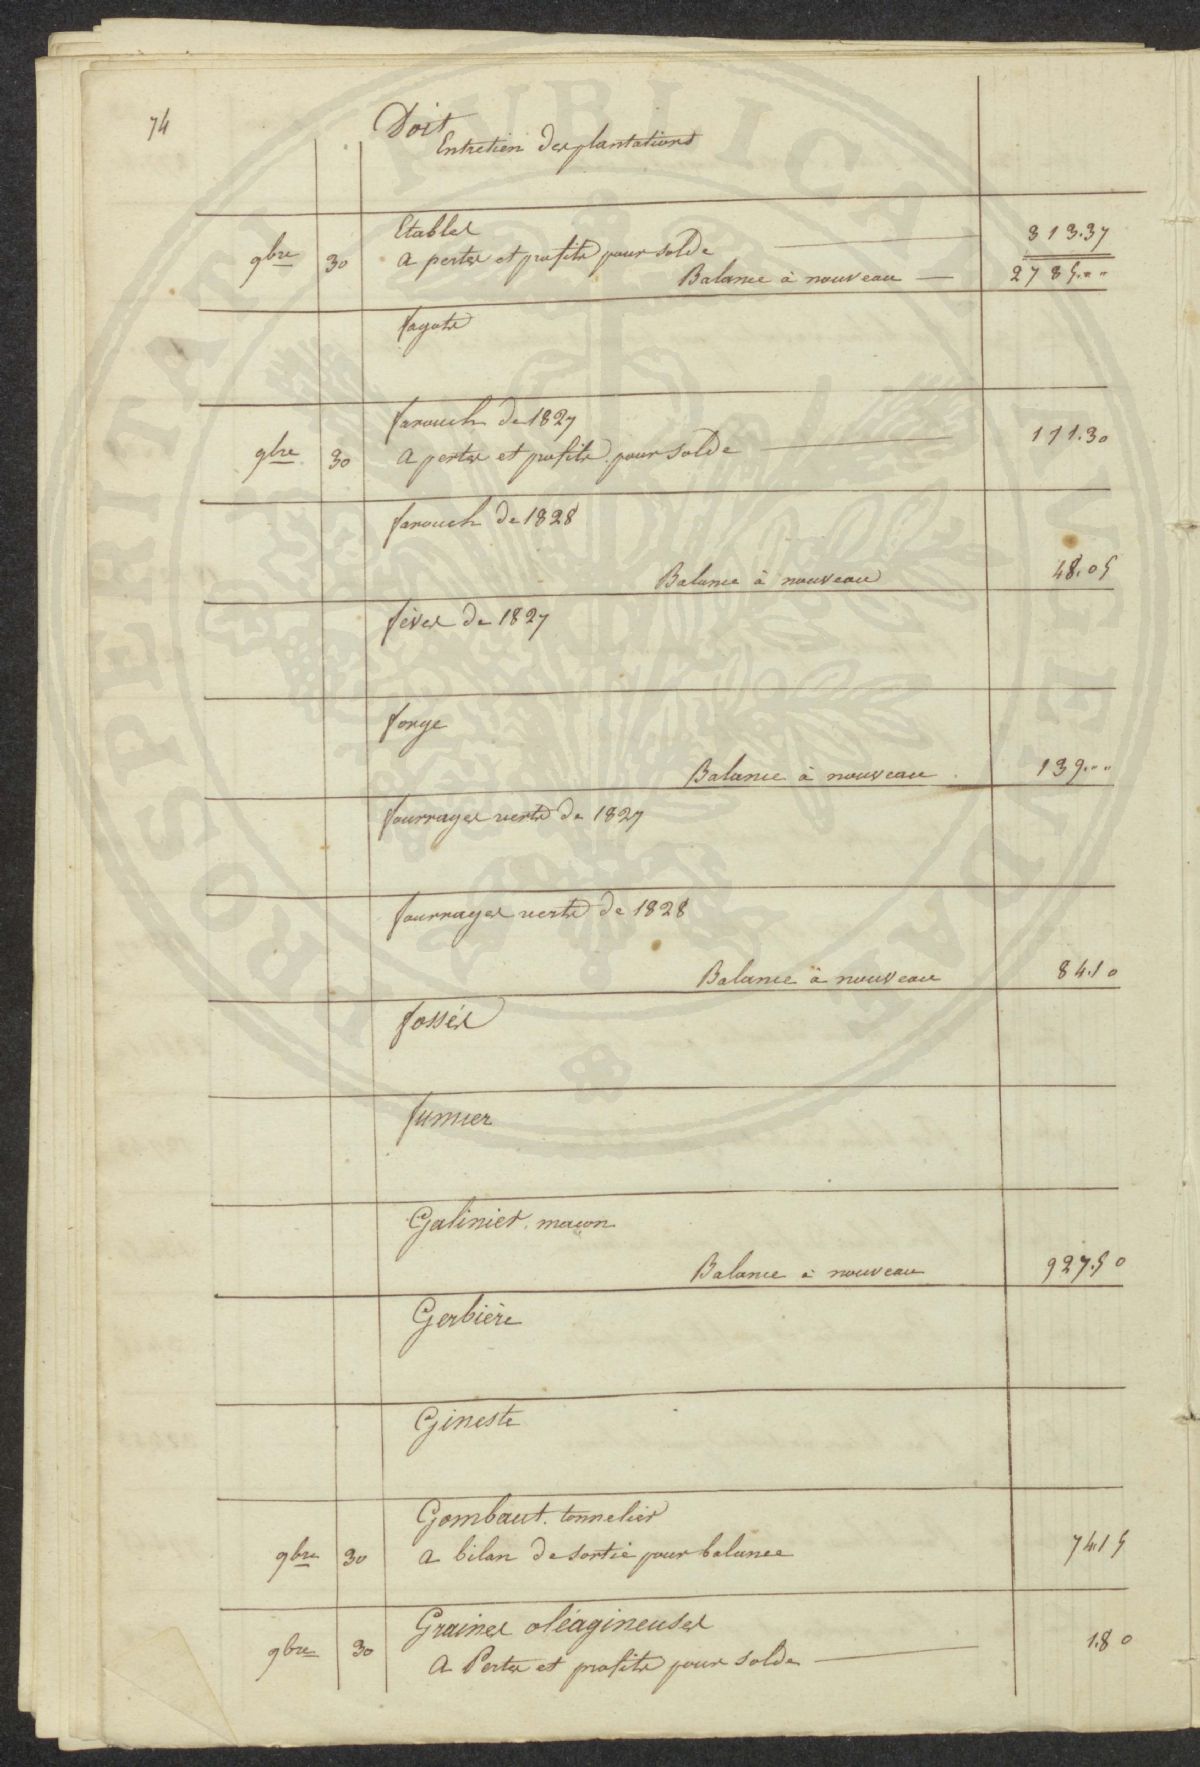 74
Doit
Entretien des plantations
Etables
313.37
9bre 30 a pertes et profits pour solde
Balance à nouveau — 2785.""
fagots
farouch de 1827
9bre 30 a pertes et profits pour solde 111.30
farouch de 1828
Balance à nouveau 48.05
fèves de 1827
forge
Balance à nouveau 139.""
fourrages verts de 1827
fourrages verts de 1828
Balance à nouveau 84.10
fossés
fumier
Galinier, maçon
Balance à nouveau 927.50
Gerbière
Gineste
Gombaut. tonnelier
9bre 30 a bilan de sortie pour balance 74.15
Graines oléagineuses
9bre 30 a Pertes et profits pour solde 1.80
PROSPERITATI PUBLICAE